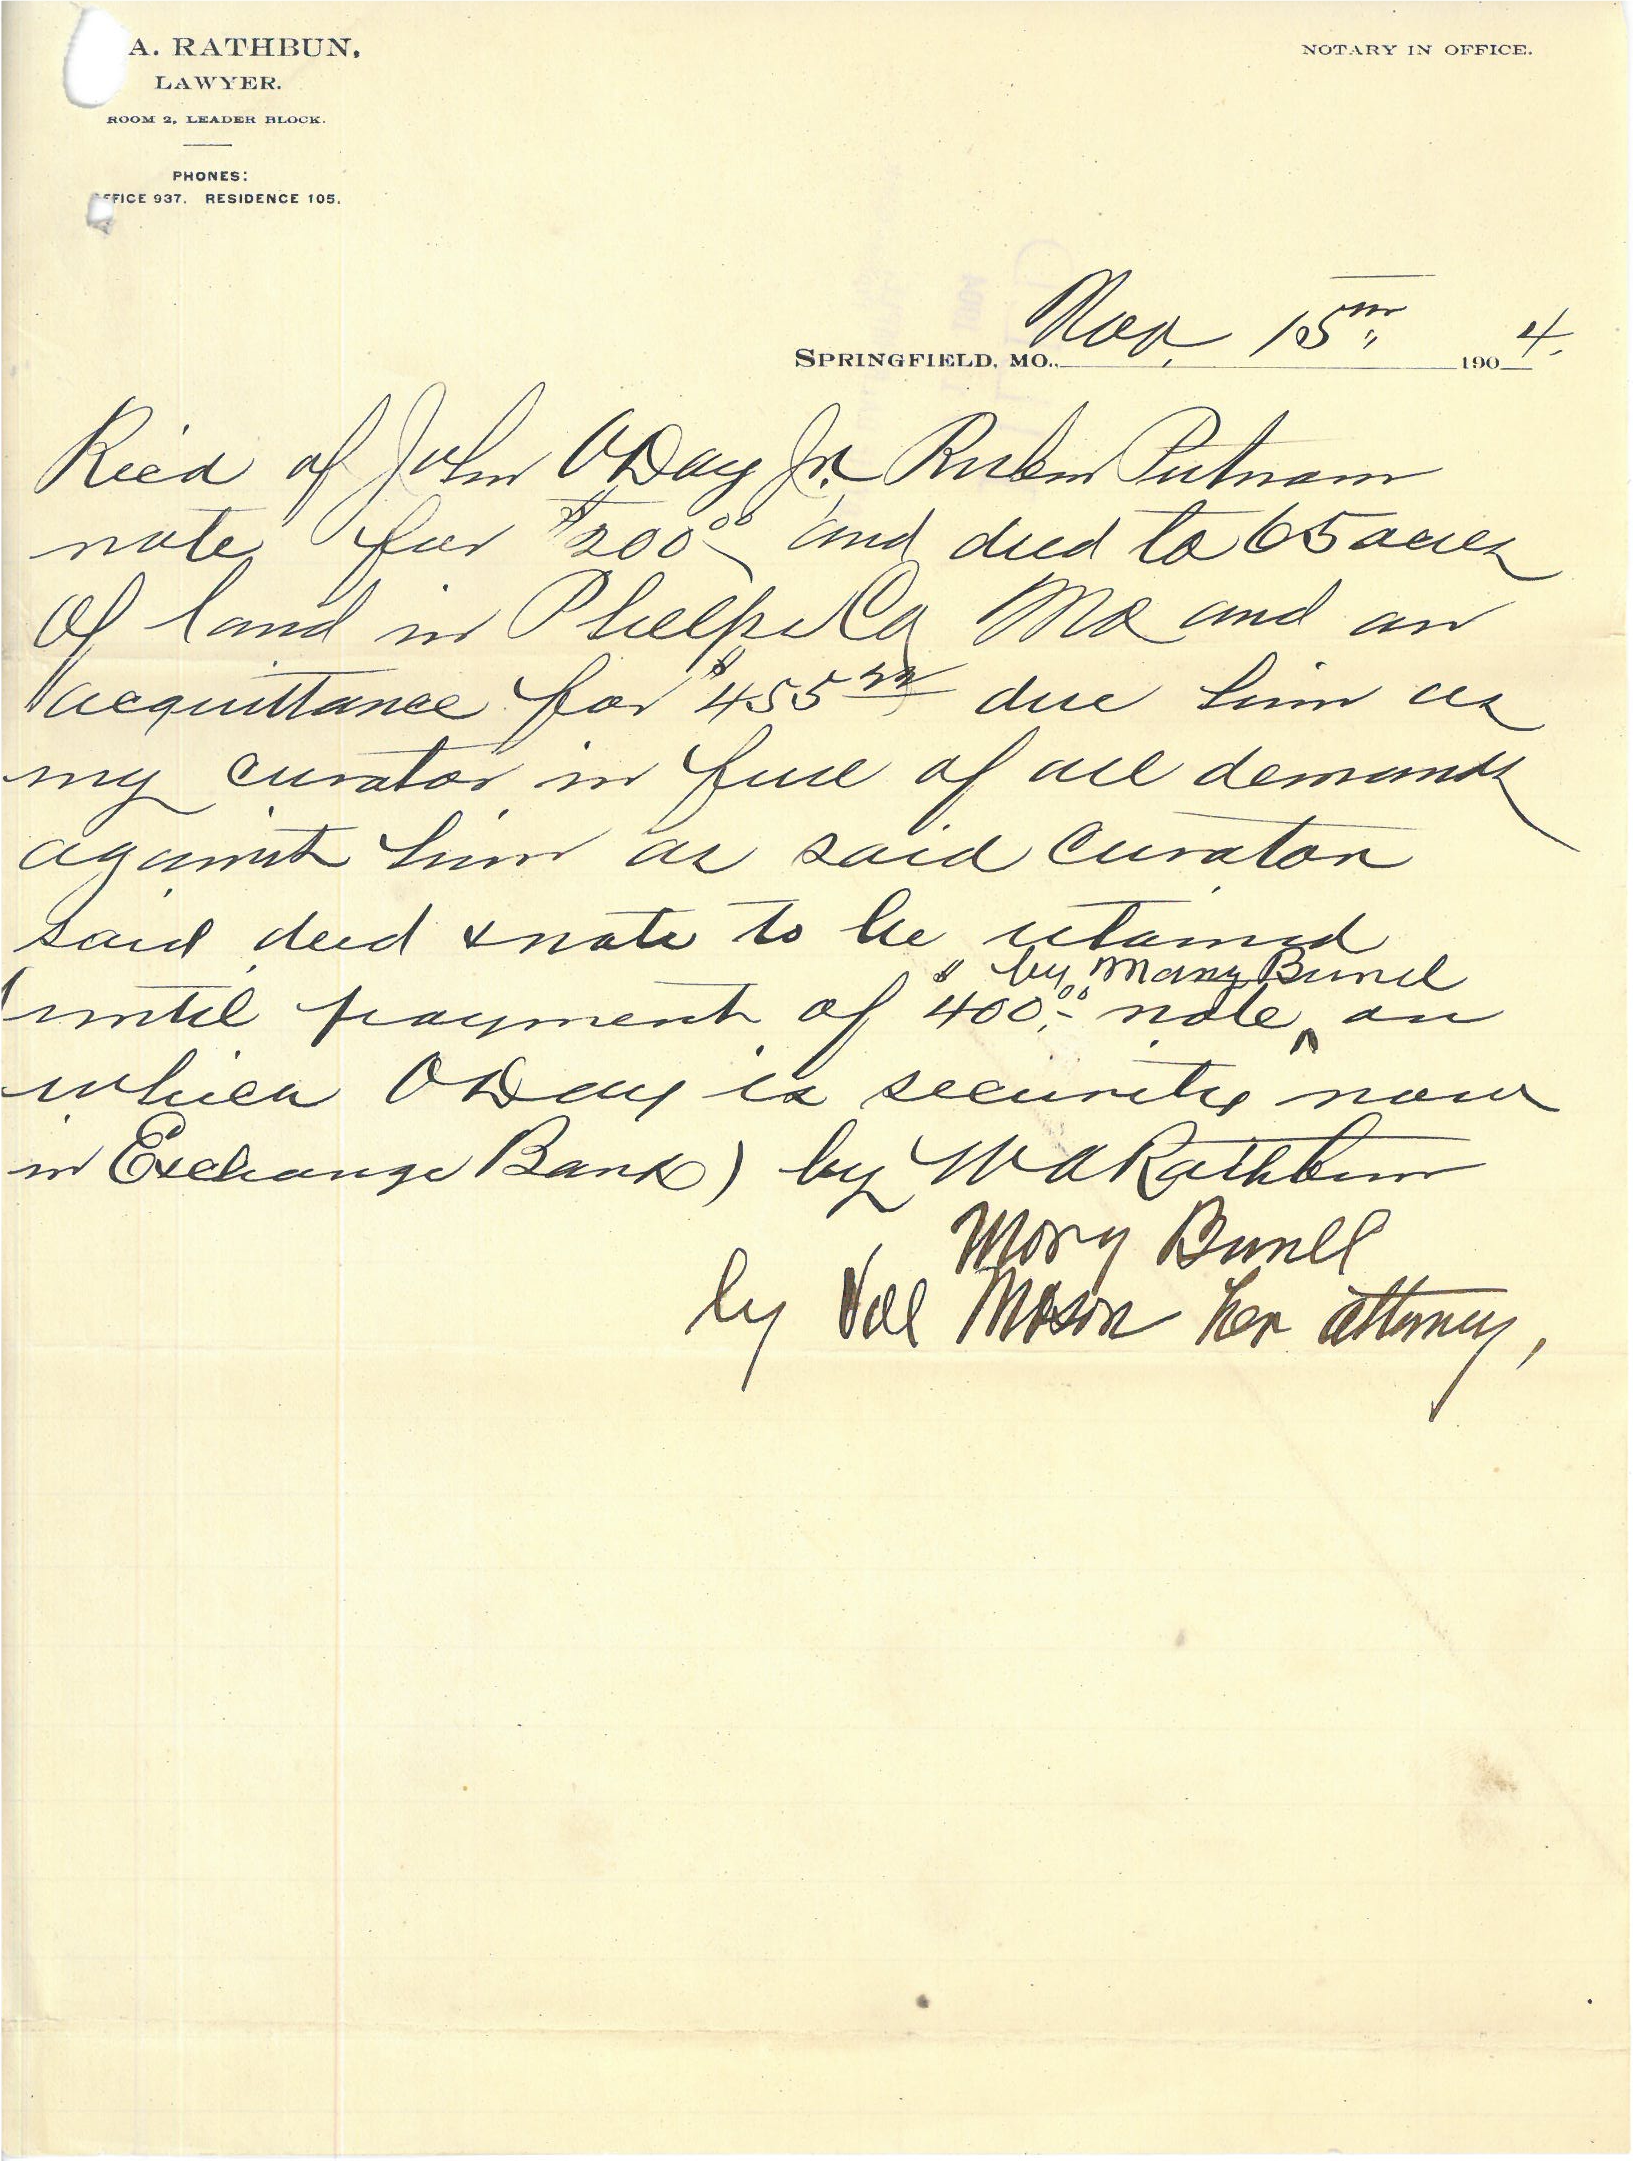 A. RATHBUN,
LAWYER.
ROOM 2, LEADER BLOCK.
PHONES:
OFFICE 937. RESIDENCE 105.
NOTARY IN OFFICE.
SPRINGFIELD, MO., Nov. 15th, 1904.
Rec'd of John O'Day Jr. Rubin Putnam
note for $200.00 and deed to 65 acres
of land in Phelps Co Mo and an
acquittance for $455 due him as
my curator in full of all demands
against him as said curator
said deed & note to be retained
by Mary Burrell
(until payment of $400.00 note ^ on
which O'Day is security now
in Exchange Bank) by W A Rathbun
Mary Burrell
by Val Mason her attorney,